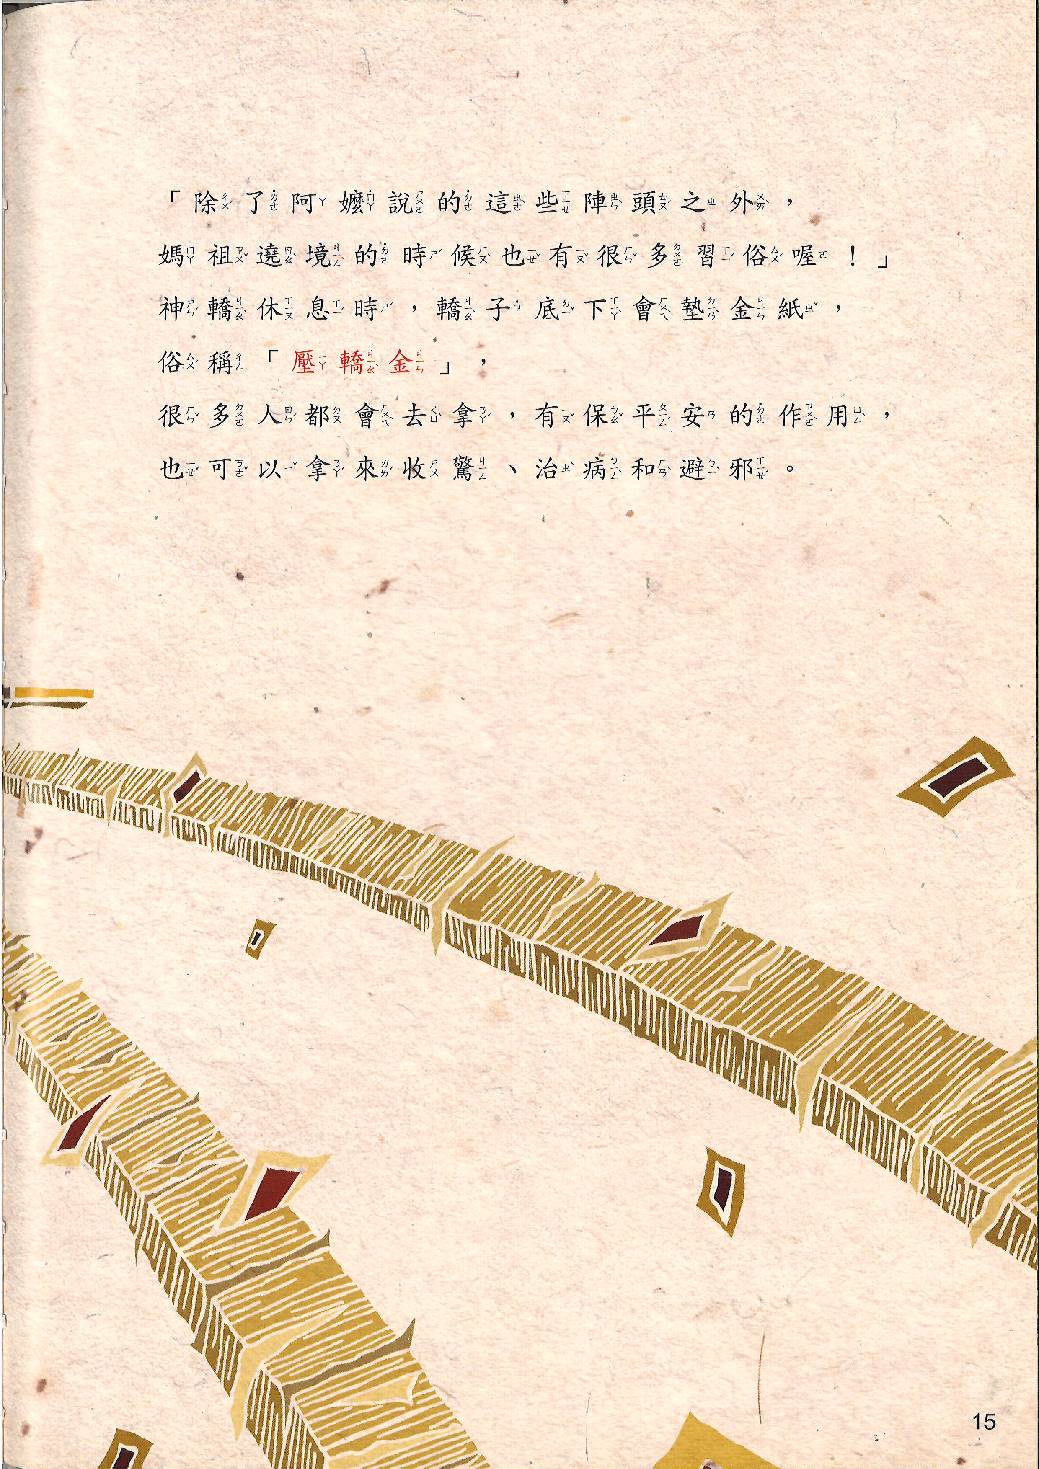 「除了阿嬤說的這些陣頭之外，
媽祖遶境的時候也有很多習俗喔！」
神轎休息時，轎子底下會墊金紙，
俗稱「壓轎金」，
很多人都會去拿，有保平安的作用，
也可以拿來收驚、治病和避邪。
15